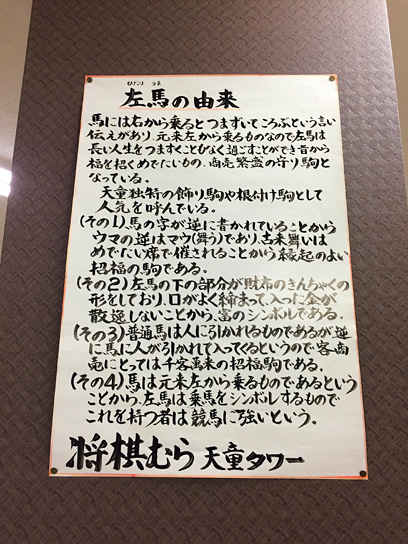 ひだり うま
左馬の由来
馬には右から乗るとつまずいてころぶという言い
伝えがあり、元来左から乗るものなので左馬は
長い人生をつまずくこともなく過ごすことができ昔から
福を招くめでたいもの、商売繁盛の守り駒と
なっている。
天童独特の飾り駒や根付け駒として
人気を呼んでいる。
(その1)馬の字が逆に書かれていることから
ウマの逆はマウ(舞う)であり、古来舞いは
めでたい席で催されることから縁起のよい
招福の駒である。
(その2)左馬の下の部分が財布のきんちゃくの
形をしており、口がよく締まって入った金が
散逸しないことから、富のシンボルである。
(その3)普通馬は人に引かれるものであるが逆
に馬に人が引かれて入ってくるというので客商
売にとっては千客万来の招福駒である。
(その4)馬は元来左から乗るものであるという
ことから、左馬は乗馬をシンボルするもので
これを持つ者は競馬に強いという。
将棋むら 天童タワー